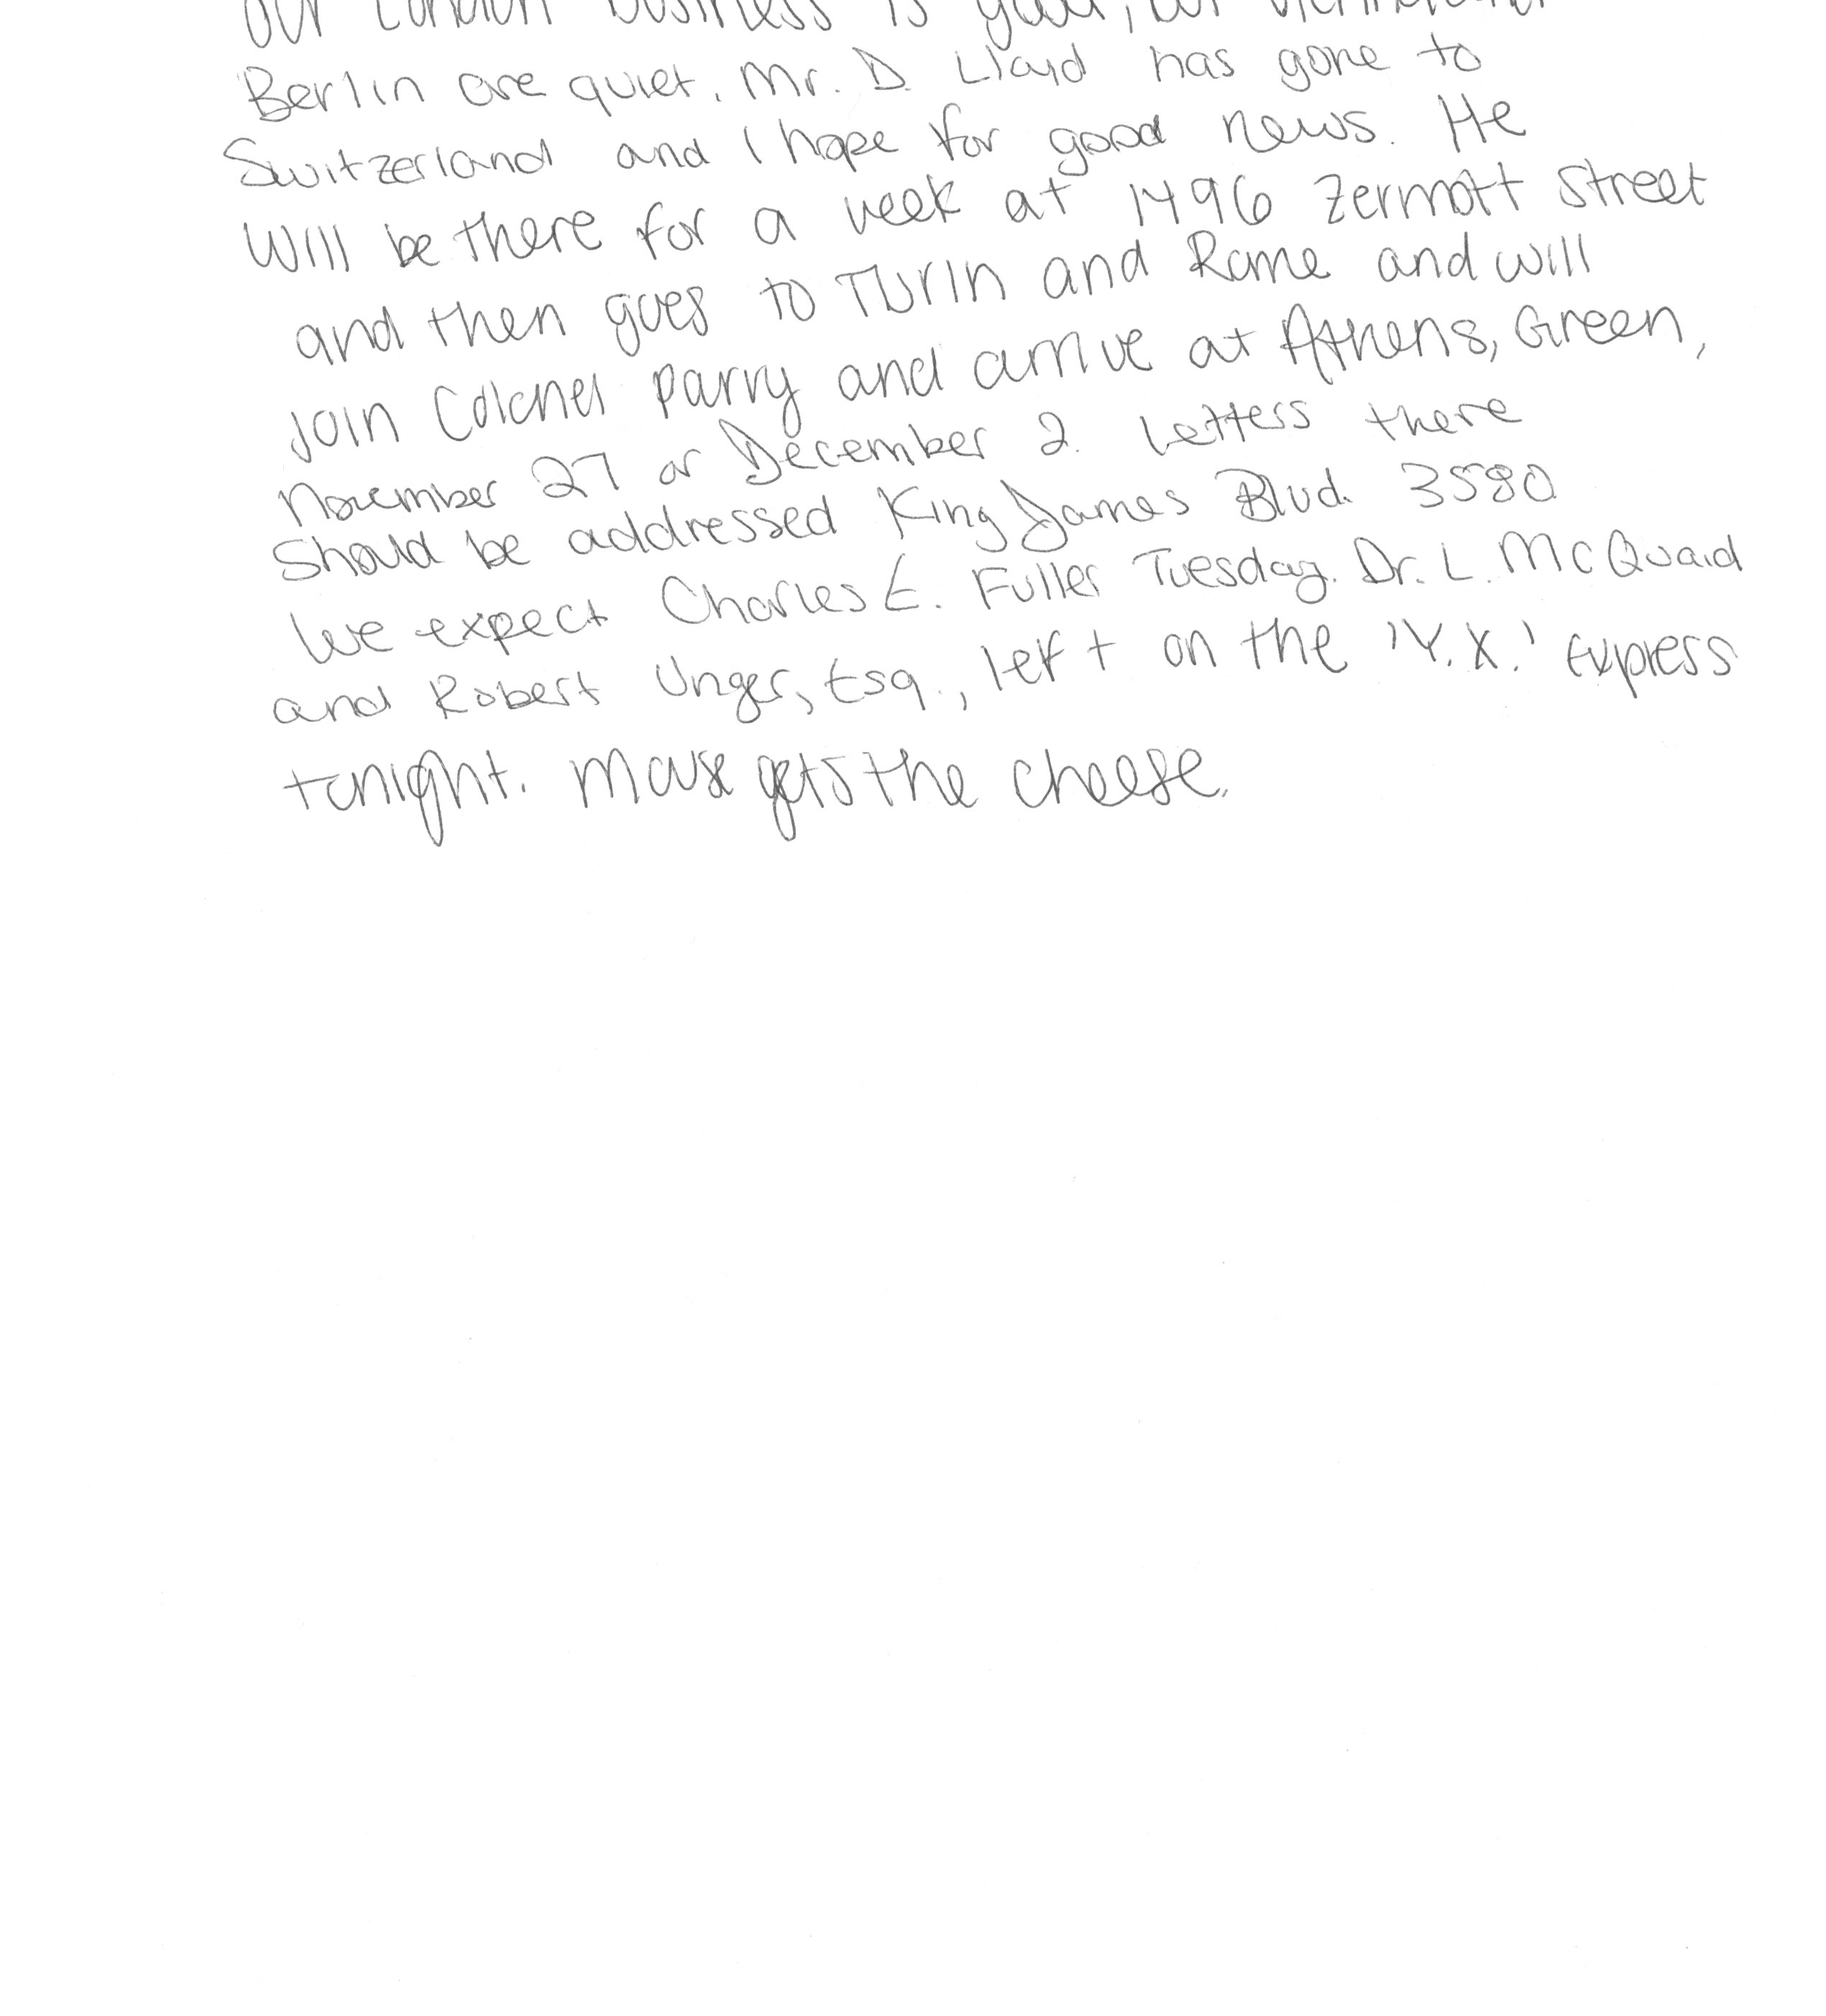 Our London business is good, but Vienna and
Berlin are quiet. Mr. D. Lloyd has gone to
Switzerland and I hope for good news. He
will be there for a week at 1496 Zermott Street
and then goes to Turin and Rome and will
join Colonel Parry and arrive at Athens, Green,
November 27 or December 2. Letters there
should be addressed King James Blvd. 3580
We expect Charles E. Fuller Tuesday. Dr. L. McQuaid
and Robert Unger, Esq., left on the 'Y.X.' Express
tonight. Mouse gets the cheese.